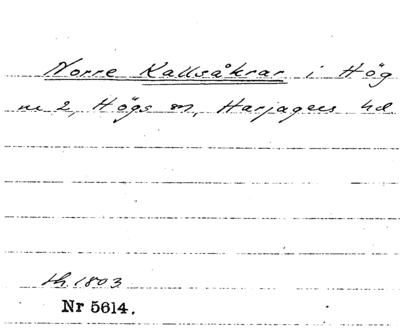 Norre Kallsåkrar i Hög
nr 2, Högs sn, Harjagers hd
sk. 1803
Nr 5614.